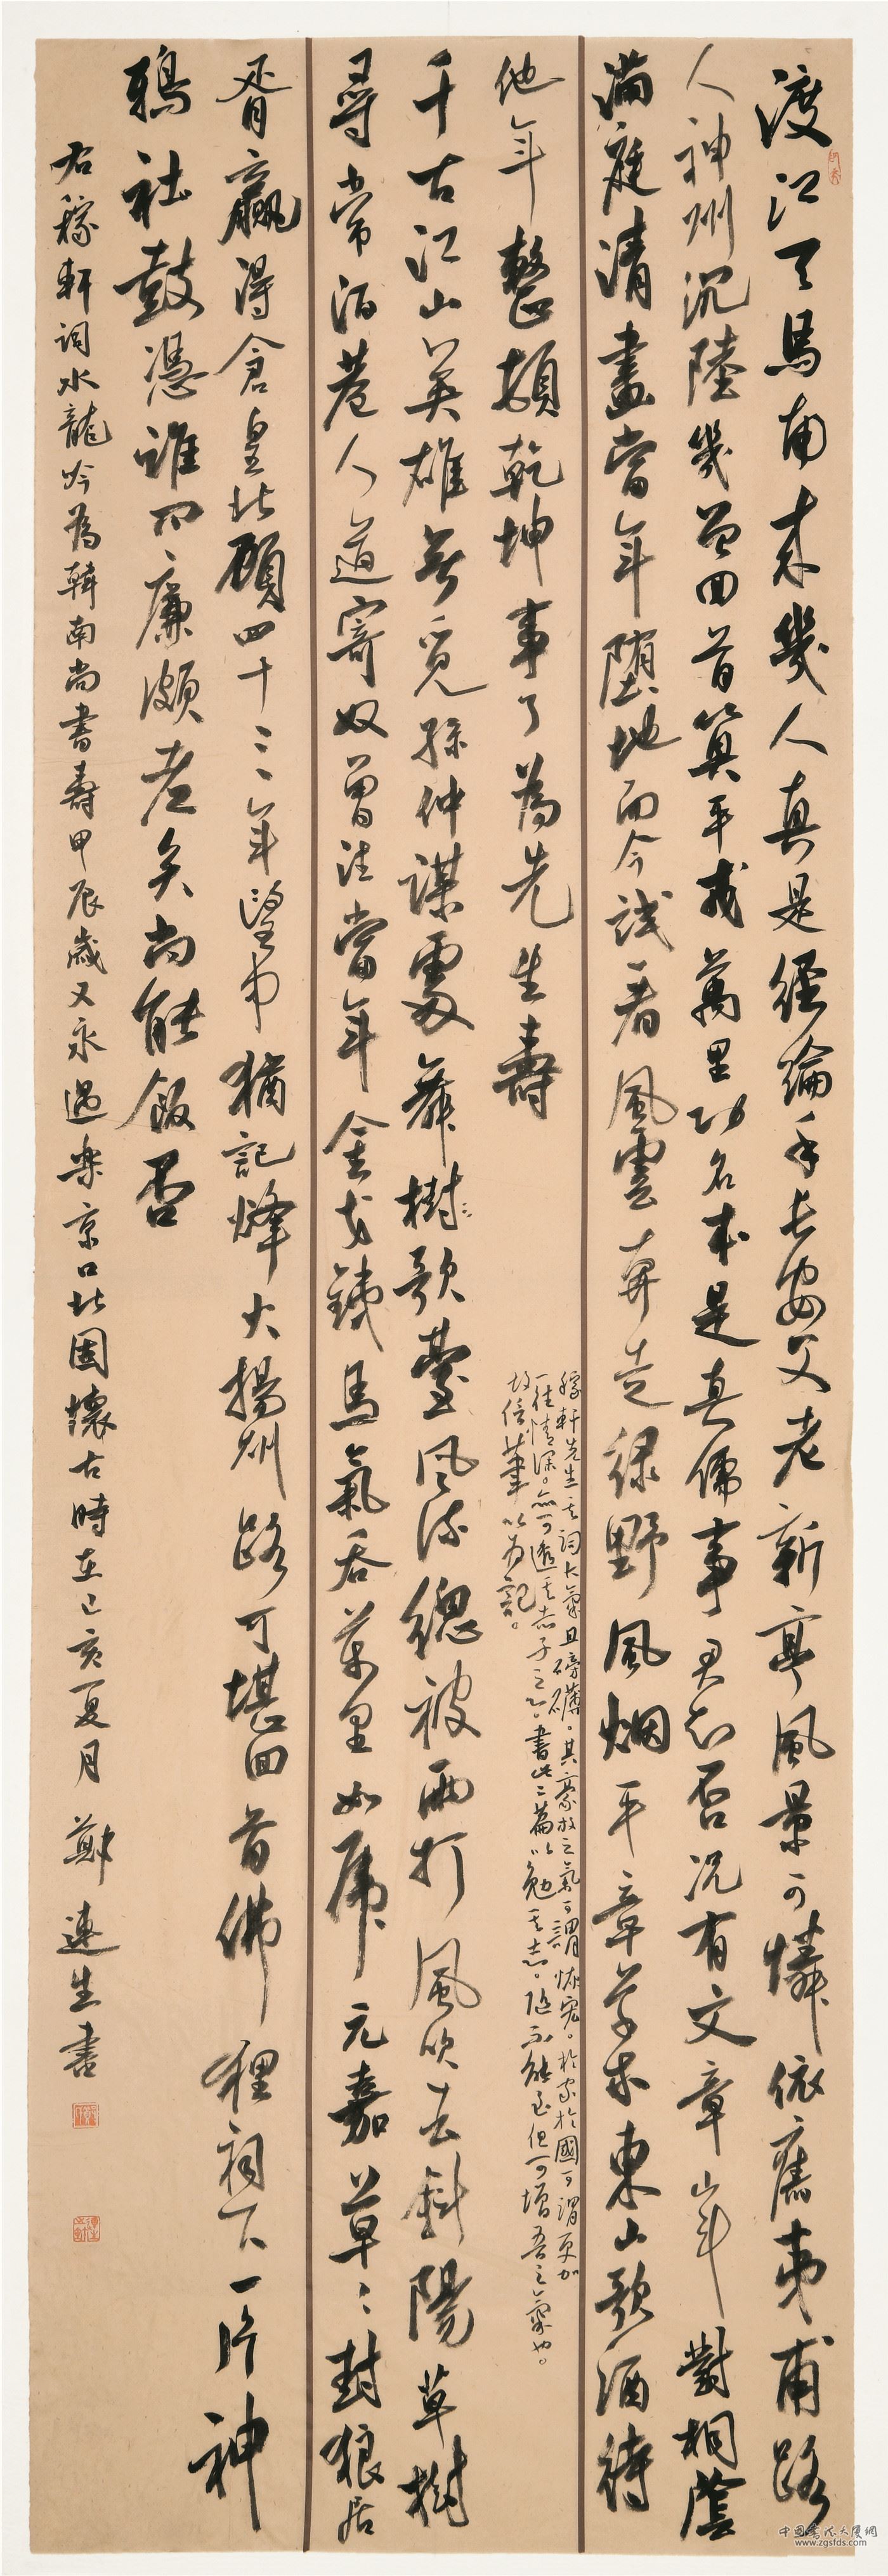 渡江天馬南來幾人真是經綸手長安父老新亭風景可憐依舊夷甫路
人神州沉陸幾曾回首算平戎萬里功名本是真儒事君知否況有文章山斗對桐蔭
滿庭清晝當年墮地而今試看風雲奔走綠野風烟平章草木東山歌酒待
他年整頓乾坤事了為先生壽
稼軒先生其詞大氣且磅礴。其豪放之氣可謂恢宏。於家於國可謂更加
一往情深。亦可透其赤子之心。書此二篇以勉其志。隨不能至但可增吾之氣也。
故信筆以為記。
千古江山英雄無覓孫仲謀處舞樹歌臺風流總被雨打風吹去斜陽草樹
尋常陌巷人道寄奴曾住當年金戈鐵馬氣吞萬里如虎元嘉草草封狼居
胥贏得倉皇北顧四十三年望中猶記烽火揚州路可堪回首佛狸祠下一片神
鴉社鼓憑誰問廉頗老矣尚能飯否
右稼軒詞水龍吟為韓南尚書壽甲辰歲又永遇樂京口北固懷古時在己亥夏月鄭連生書
中国书法大厦網
www.zgsfds.com